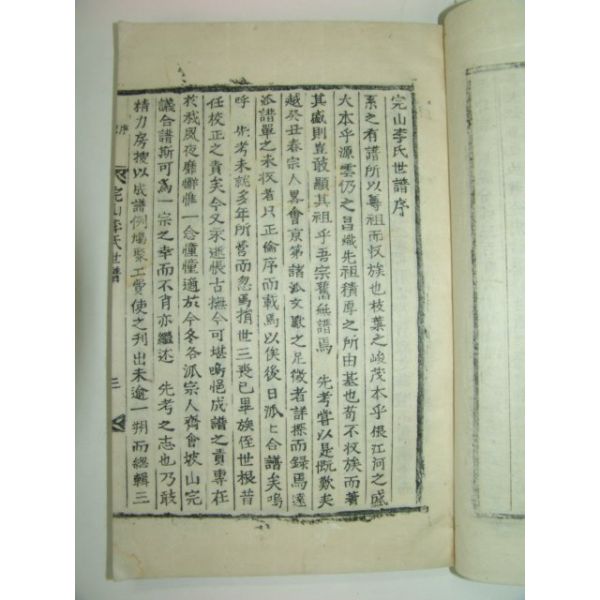 完山李氏世譜序
系之有譜所以尊祖而收族也枝葉之峻茂本乎根江河之盛
大本乎源雲仍之昌熾先祖積厚之所由基也苟不收族而著
其盛則豈敢顯其祖乎吾宗舊無譜焉 先考嘗以是慨歎矣
越癸丑春宗人畧會京第諸派文獻之足徵者詳探而錄焉遠
派譜單之未收者只正倫序而載焉以俟後日派上合譜矣嗚
呼 先考未就多年所營而忽焉捐世三喪已畢族侄世根昔
任校正之責矣今又永逝悵古撫今可堪嗚悒成譜之責專在
於我夙夜靡懈惟一念憧憧適玆今冬各派宗人齊會坡山完
議合譜斯可爲一宗之幸而不肖亦繼述 先考之志也乃敢
精力房搜以成譜例鳩聚工費使之刊出未逾一朔而總輯三
完山李氏世譜
序
三